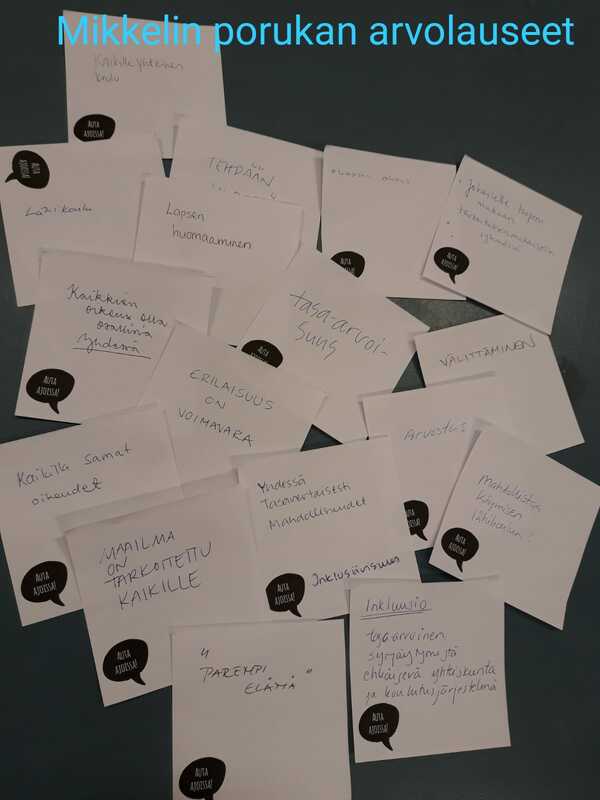 Mikkelin porukan arvolauseet
Kaikille yhteinen
koulu
AUTA
AJOISSA!
AUTA
AJOISSA!
Lähikoulu
TEHDÄÄN
Lapsen
huomaaminen
AUTA
Jokaiselle
mukaan
AUTA
AJOISSA!
Kaikkien
oikeus olla
osallisia
yhdessä
AUTA
AJOISSA!
tasa-arvoi-
suus
AUTA
VÄLITTÄMINEN
ERILAISUUS
ON
VOIMAVARA
Arvostus
AUTA
AJOISSA!
Kaikilla samat
oikeudet
AUTA
AJOISSA!
Yhdessä
Tasavertaisesti
Mahdollisuudet
Inklusiivisuus
AUTA
AJOISSA!
Mahdollistaa
lähikoulun
AUTA
AJOISSA!
MAAILMA
ON
TARKOITETTU
KAIKILLE
AUTA
AJOISSA!
Inkluusio
tasa-arvoinen
syrjäytymistä
ehkäisevä yhteiskunta
ja koulutusjärjestelmä
AUTA
AJOISSA!
"PAREMPI
ELÄMÄ"
AUTA
AJOISSA!